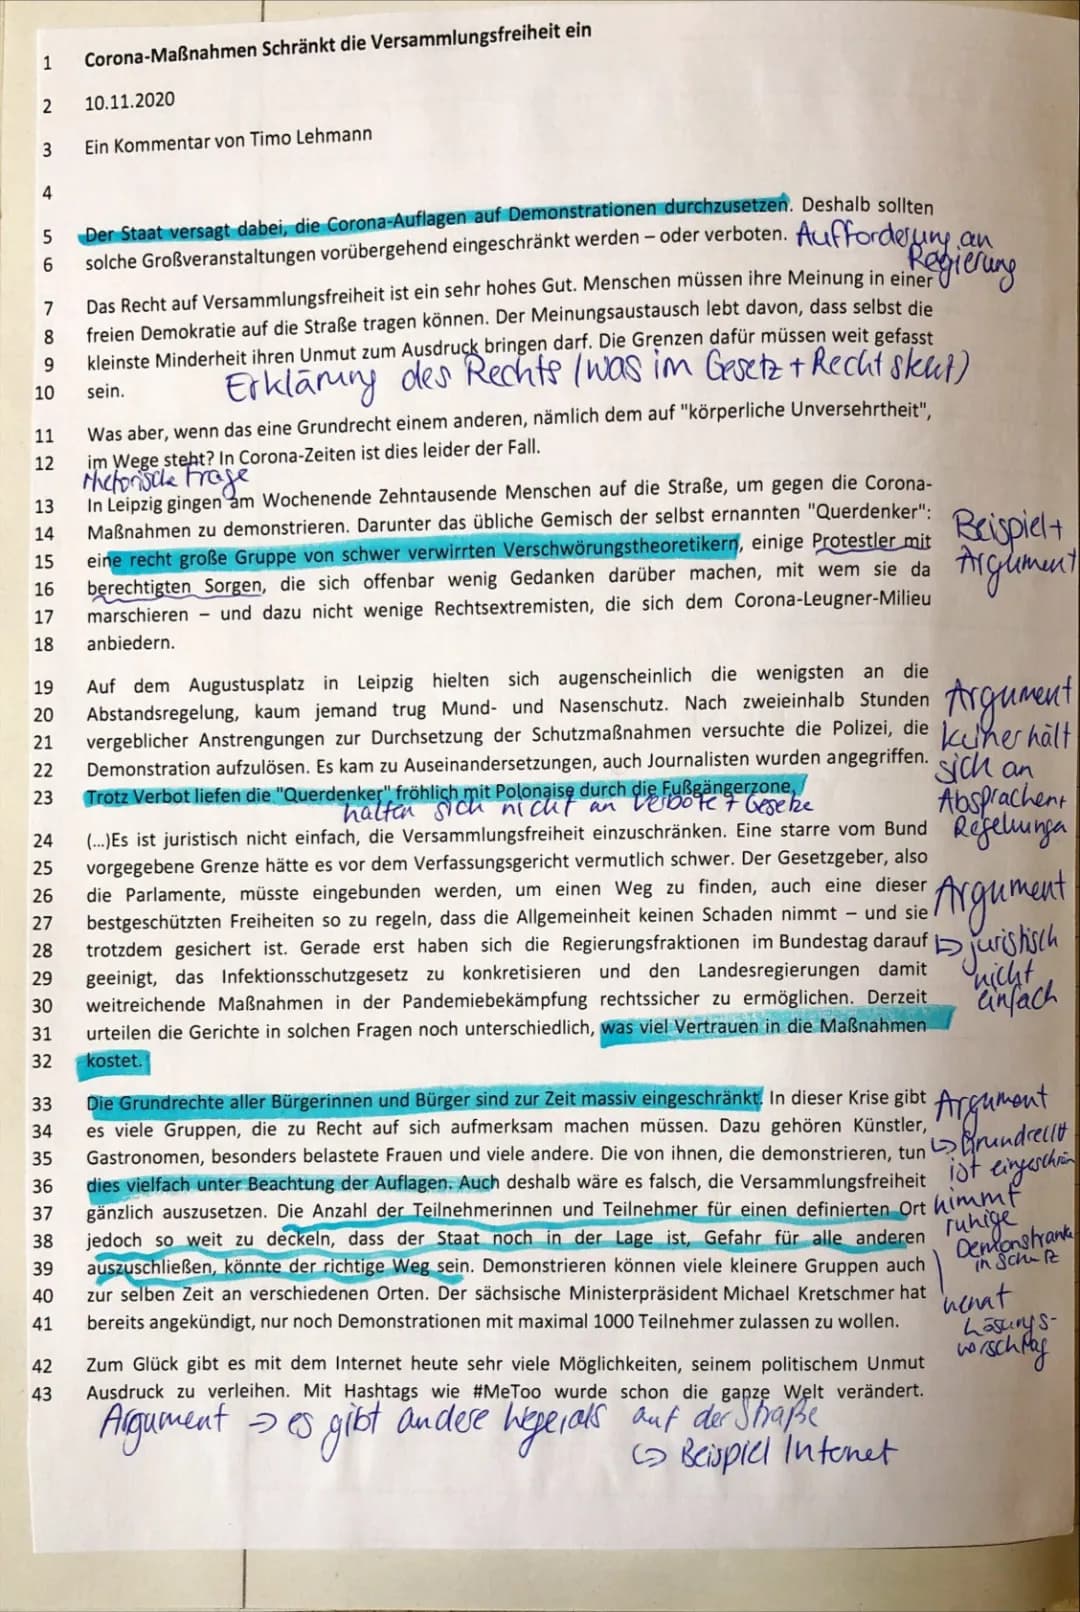 1 Corona-Maßnahmen Schränkt die Versammlungsfreiheit ein
2 10.11.2020
3 Ein Kommentar von Timo Lehmann
4
5 Der Staat versagt dabei, die Corona-Auflagen auf Demonstrationen durchzusetzen. Deshalb sollten
6 solche Großveranstaltungen vorübergehend eingeschränkt werden – oder verboten. Aufforderung an
Regierung
7 Das Recht auf Versammlungsfreiheit ist ein sehr hohes Gut. Menschen müssen ihre Meinung in einer
8 freien Demokratie auf die Straße tragen können. Der Meinungsaustausch lebt davon, dass selbst die
9 kleinste Minderheit ihren Unmut zum Ausdruck bringen darf. Die Grenzen dafür müssen weit gefasst
10 sein. Erklärung des Rechts (was im Gesetz + Recht steht)
11 Was aber, wenn das eine Grundrecht einem anderen, nämlich dem auf "körperliche Unversehrtheit",
12 im Wege steht? In Corona-Zeiten ist dies leider der Fall.
rhetorische Frage
13 In Leipzig gingen am Wochenende Zehntausende Menschen auf die Straße, um gegen die Corona-
14 Maßnahmen zu demonstrieren. Darunter das übliche Gemisch der selbst ernannten "Querdenker":
15 eine recht große Gruppe von schwer verwirrten Verschwörungstheoretikern, einige Protestler mit
16 berechtigten Sorgen, die sich offenbar wenig Gedanken darüber machen, mit wem sie da
17 marschieren – und dazu nicht wenige Rechtsextremisten, die sich dem Corona-Leugner-Milieu
18 anbiedern.
Beispiel +
Argument
19 Auf dem Augustusplatz in Leipzig hielten sich augenscheinlich die wenigsten an die
20 Abstandsregelung, kaum jemand trug Mund- und Nasenschutz. Nach zweieinhalb Stunden
21 vergeblicher Anstrengungen zur Durchsetzung der Schutzmaßnahmen versuchte die Polizei, die
22 Demonstration aufzulösen. Es kam zu Auseinandersetzungen, auch Journalisten wurden angegriffen.
23 Trotz Verbot liefen die "Querdenker" fröhlich mit Polonaise durch die Fußgängerzone.
halten sich nicht an Verbote + Gesetze
Argument
keiner hält
sich an
Absprachen +
24 (...)Es ist juristisch nicht einfach, die Versammlungsfreiheit einzuschränken. Eine starre vom Bund
25 vorgegebene Grenze hätte es vor dem Verfassungsgericht vermutlich schwer. Der Gesetzgeber, also
26 die Parlamente, müsste eingebunden werden, um einen Weg zu finden, auch eine dieser
27 bestgeschützten Freiheiten so zu regeln, dass die Allgemeinheit keinen Schaden nimmt – und sie
28 trotzdem gesichert ist. Gerade erst haben sich die Regierungsfraktionen im Bundestag darauf
29 geeinigt, das Infektionsschutzgesetz zu konkretisieren und den Landesregierungen damit
30 weitreichende Maßnahmen in der Pandemiebekämpfung rechtssicher zu ermöglichen. Derzeit
31 urteilen die Gerichte in solchen Fragen noch unterschiedlich, was viel Vertrauen in die Maßnahmen
32 kostet.
Argument
↳ juristisch
nicht
einfach
33 Die Grundrechte aller Bürgerinnen und Bürger sind zur Zeit massiv eingeschränkt. In dieser Krise gibt
34 es viele Gruppen, die zu Recht auf sich aufmerksam machen müssen. Dazu gehören Künstler,
35 Gastronomen, besonders belastete Frauen und viele andere. Die von ihnen, die demonstrieren, tun
36 dies vielfach unter Beachtung der Auflagen. Auch deshalb wäre es falsch, die Versammlungsfreiheit
37 gänzlich auszusetzen. Die Anzahl der Teilnehmerinnen und Teilnehmer für einen definierten Ort
38 jedoch so weit zu deckeln, dass der Staat noch in der Lage ist, Gefahr für alle anderen
39 auszuschließen, könnte der richtige Weg sein. Demonstrieren können viele kleinere Gruppen auch
40 zur selben Zeit an verschiedenen Orten. Der sächsische Ministerpräsident Michael Kretschmer hat
41 bereits angekündigt, nur noch Demonstrationen mit maximal 1000 Teilnehmer zulassen zu wollen.
Argument
↳ Grundrecht
ist eingeschrän
nimmt
ruhige
in Schutz
nennt
Lösungs-
vorschlag
42 Zum Glück gibt es mit dem Internet heute sehr viele Möglichkeiten, seinem politischem Unmut
43 Ausdruck zu verleihen. Mit Hashtags wie #MeToo wurde schon die ganze Welt verändert.
Argument → es gibt andere Wege, als auf der Straße
↳ Beispiel Internet